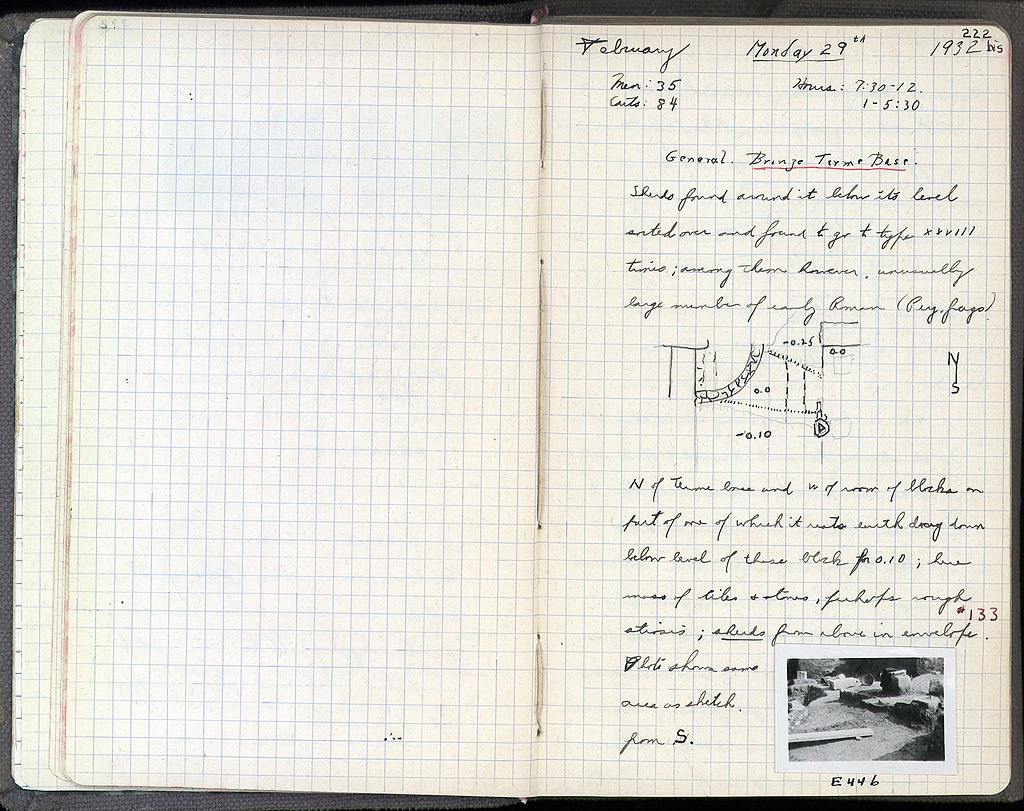 222
February Monday 29th 1932 bis
Men: 35 Hours: 7:30-12.
Carts: 84 1-5:30
General. Bronze Terme Base.
Sherds found around it below its level
sorted over and found to go to type xxviii
times; among them however, unusually
large number of early Roman (Perg. frags)
-0.25
0.0
N
S
0.0
-0.10
N of Terme base and W of room of blocks on
part of one of which it rests earth dug down
below level of these block for 0.10; here
mass of tiles & stones, perhaps rough
#133
strosis; sherds from above in envelope.
Photo shows same
area as sketch.
from S.
E446